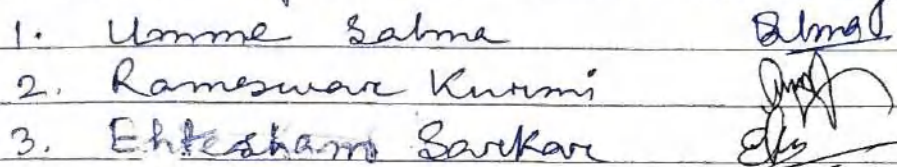 1. Umme Salma Salma
2. Rameswar Kurmi
3. Ehtesham Sarkar